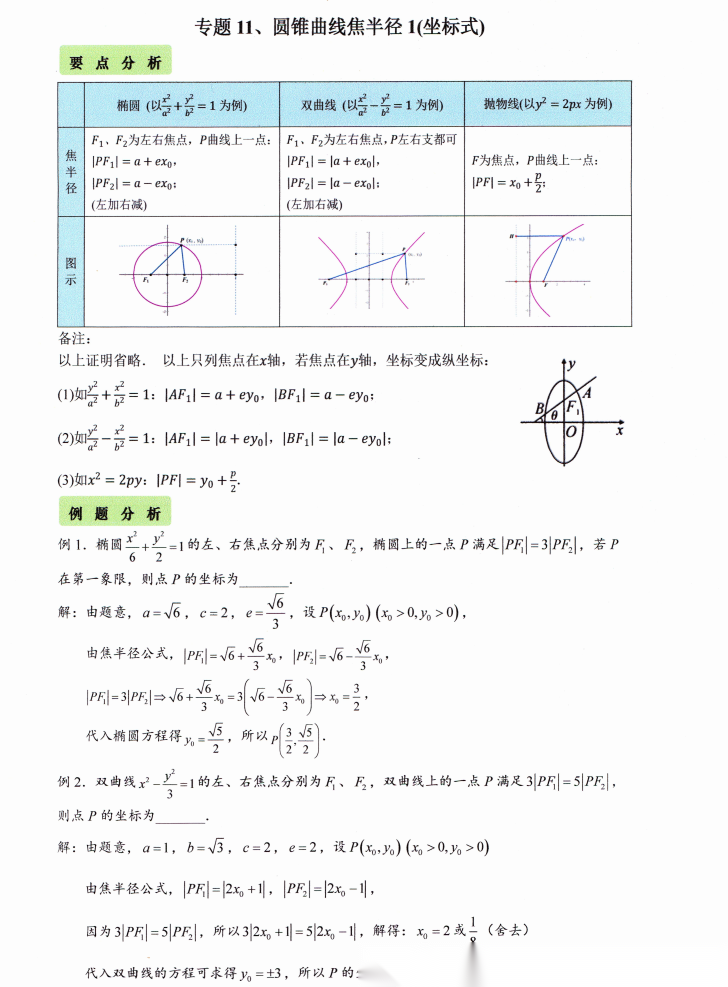 专题 11、圆锥曲线焦半径 1(坐标式)
要 点 分 析
椭圆 (以x²/a²+y²/b²=1 为例)
双曲线 (以x²/a²−y²/b²=1 为例)
抛物线(以y² = 2px 为例)
焦半径
F₁、F₂为左右焦点，P曲线上一点：
|PF₁| = a + ex₀，
|PF₂| = a − ex₀；
(左加右减)
F₁、F₂为左右焦点，P左右支都可
|PF₁| = |a + ex₀|，
|PF₂| = |a − ex₀|；
(左加右减)
F为焦点，P曲线上一点：
|PF| = x₀ + p/2；
图示
P (x₀, y₀)
F₁ F₂
P
F₁ F₂
H P(x₀, y₀)
F
备注：
以上证明省略． 以上只列焦点在x轴，若焦点在y轴，坐标变成纵坐标：
(1)如y²/a² + x²/b² = 1：|AF₁| = a + ey₀，|BF₁| = a − ey₀；
(2)如y²/a² − x²/b² = 1：|AF₁| = |a + ey₀|，|BF₁| = |a − ey₀|；
(3)如x² = 2py：|PF| = y₀ + p/2.
y
A
B θ F₁
O x
例 题 分 析
例 1．椭圆 x²/6 + y²/2 = 1 的左、右焦点分别为 F₁、F₂，椭圆上的一点 P 满足 |PF₁| = 3|PF₂|，若 P
在第一象限，则点 P 的坐标为______．
解：由题意，a = √6，c = 2，e = √6/3，设 P(x₀, y₀) (x₀ > 0, y₀ > 0)，
由焦半径公式，|PF₁| = √6 + √6/3 x₀，|PF₂| = √6 − √6/3 x₀，
|PF₁| = 3|PF₂| ⇒ √6 + √6/3 x₀ = 3(√6 − √6/3 x₀) ⇒ x₀ = 3/2，
代入椭圆方程得 y₀ = √5/2，所以 P(3/2, √5/2)．
例 2．双曲线 x² − y²/3 = 1 的左、右焦点分别为 F₁、F₂，双曲线上的一点 P 满足 3|PF₁| = 5|PF₂|，
则点 P 的坐标为______．
解：由题意，a = 1，b = √3，c = 2，e = 2，设 P(x₀, y₀) (x₀ > 0, y₀ > 0)
由焦半径公式，|PF₁| = |2x₀ + 1|，|PF₂| = |2x₀ − 1|，
因为 3|PF₁| = 5|PF₂|，所以 3|2x₀ + 1| = 5|2x₀ − 1|，解得：x₀ = 2 或 1/8（舍去）
代入双曲线的方程可求得 y₀ = ±3，所以 P 的